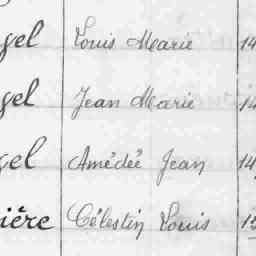 gel Louis Marie 14
gel Jean Marie 14
gel Amédée Jean 14
ière Célestin Louis 15